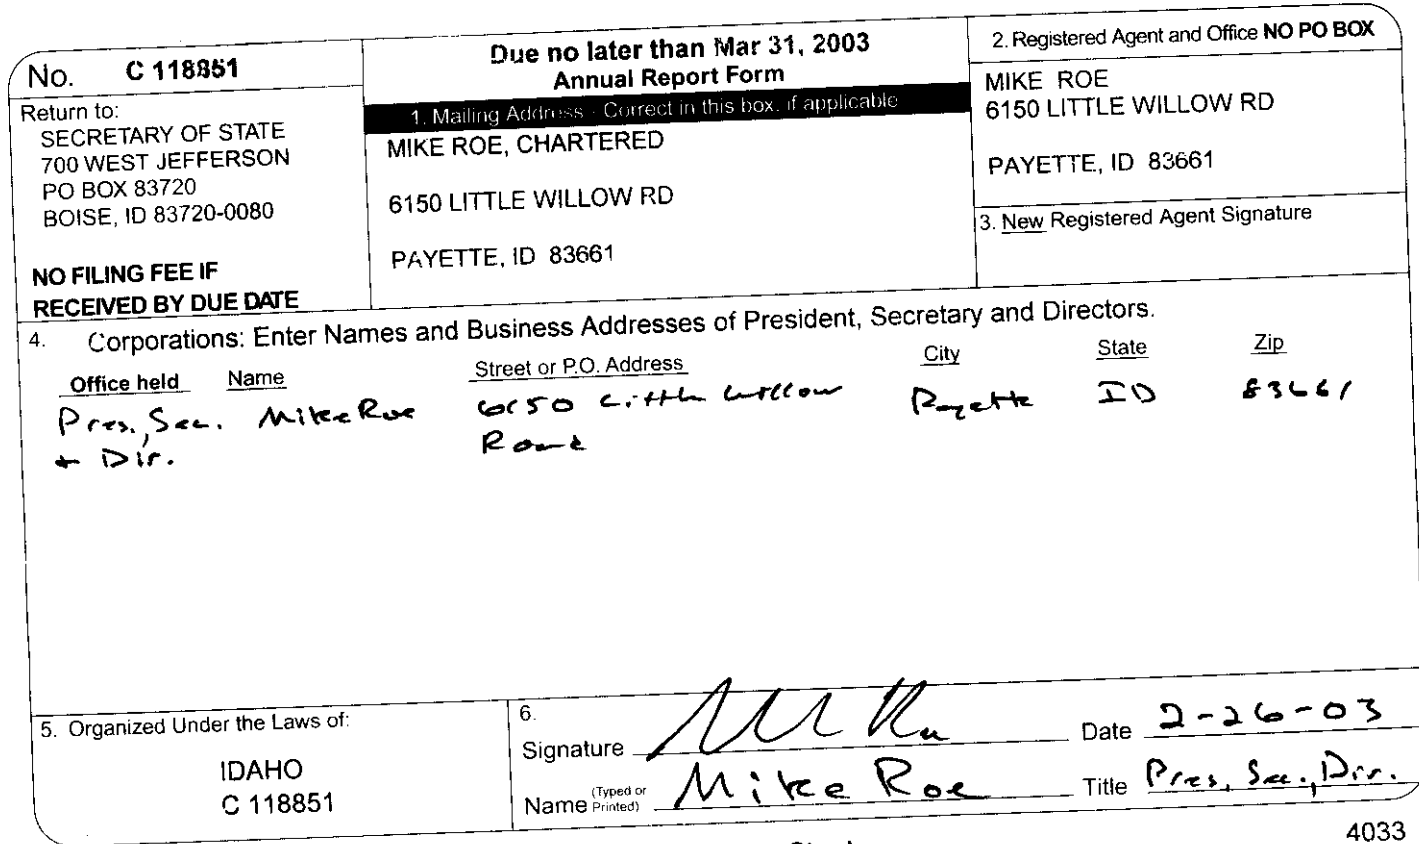 No. C 118851
Return to:
SECRETARY OF STATE
700 WEST JEFFERSON
PO BOX 83720
BOISE, ID 83720-0080
NO FILING FEE IF
RECEIVED BY DUE DATE
Due no later than Mar 31, 2003
Annual Report Form
1. Mailing Address - Correct in this box, if applicable
MIKE ROE, CHARTERED
6150 LITTLE WILLOW RD
PAYETTE, ID 83661
2. Registered Agent and Office NO PO BOX
MIKE ROE
6150 LITTLE WILLOW RD
PAYETTE, ID 83661
3. New Registered Agent Signature
4. Corporations: Enter Names and Business Addresses of President, Secretary and Directors.
Office held Name Street or P.O. Address City State Zip
Pres., Sec. Mike Roe 6150 Little Willow Payette ID 83661
+ Dir. Road
5. Organized Under the Laws of:
IDAHO
C 118851
6.
Signature Date 2-26-03
Name (Typed or Printed) Mike Roe Title Pres, Sec., Dir.
4033